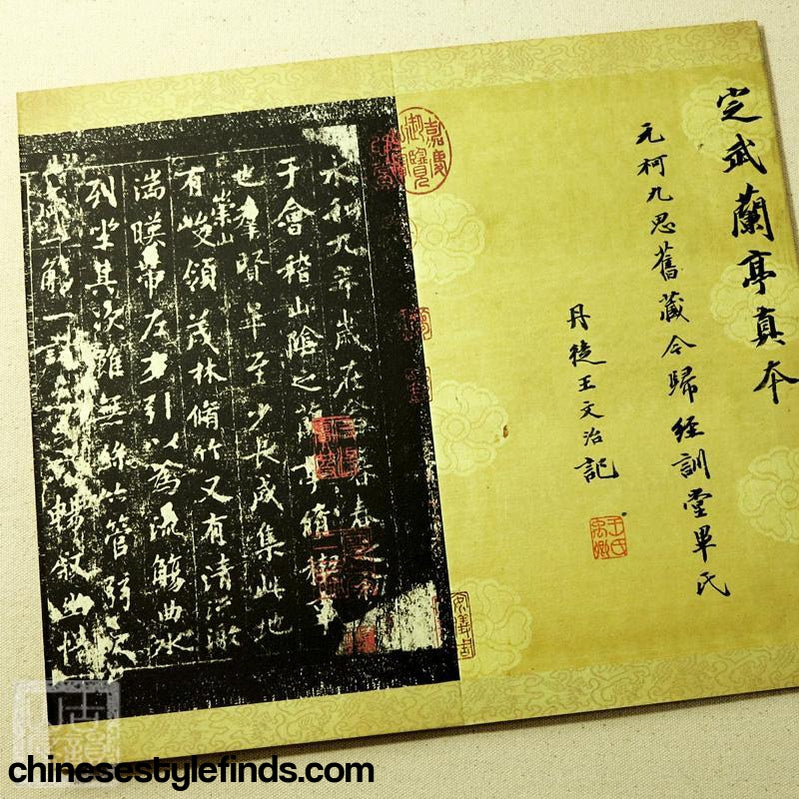 定武蘭亭真本
元柯九思舊藏今歸經訓堂畢氏
丹徒王文治記
嘉慶御覽
永和九年歲在春之初
于會稽山陰之蘭亭脩禊事
也羣賢畢至少長咸集此地
有崇山峻領茂林脩竹又有清流激
湍暎帶左右引以為流觴曲水
列坐其次雖無絲竹管弦之
觴一詠暢敘幽情
chinesestylefinds.com